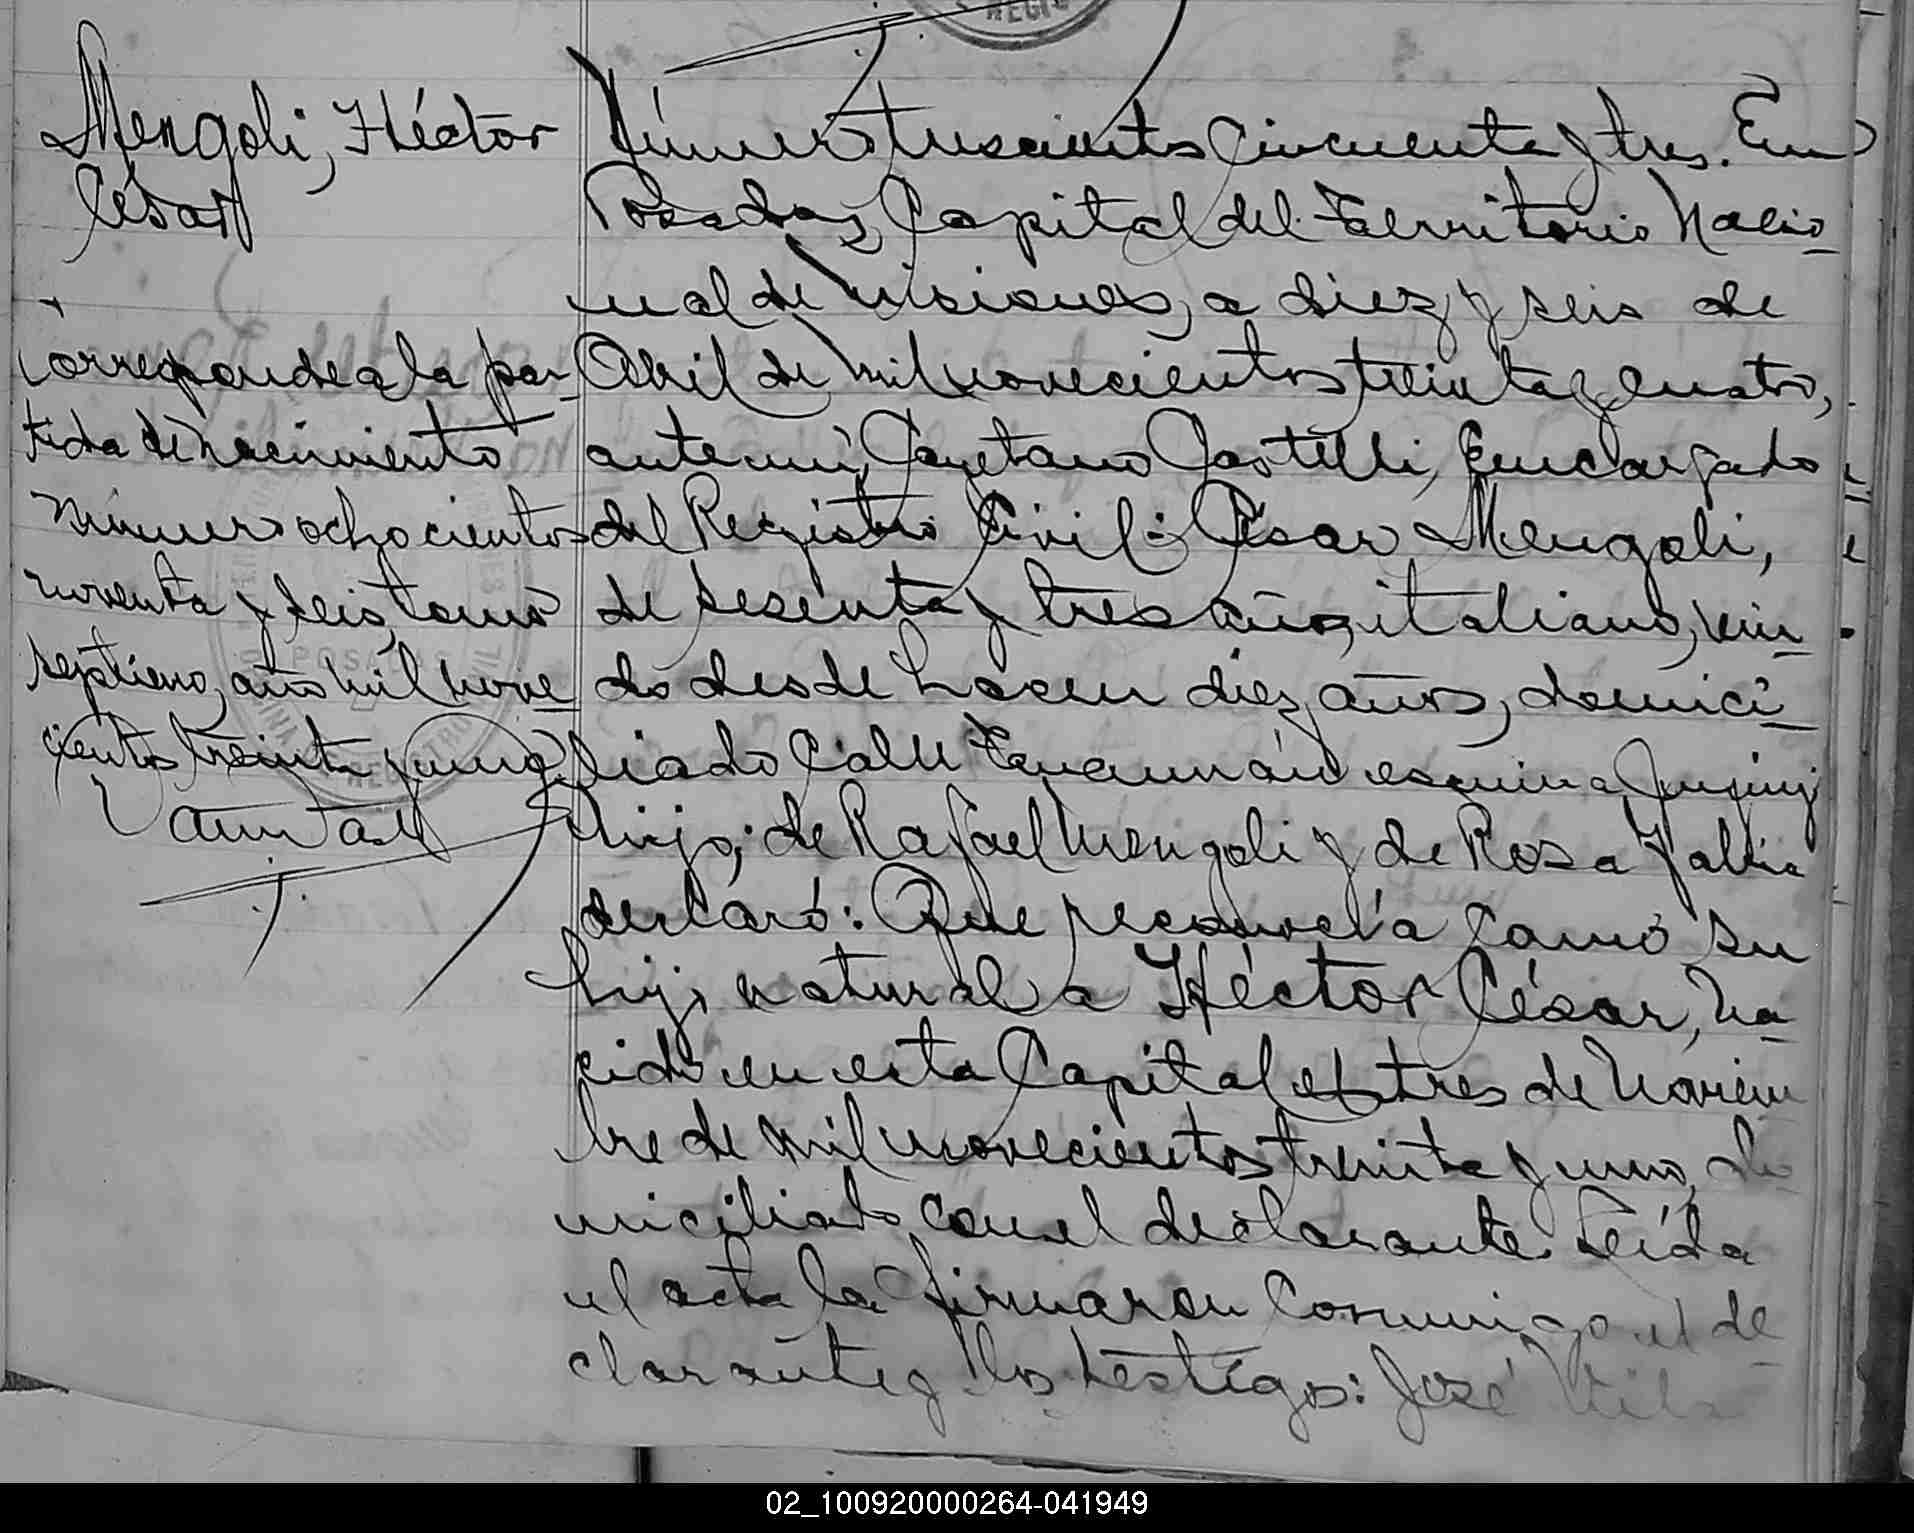 REGIS
Mengoli, Héctor
César
Corresponde a la par-
tida de nacimiento
número ochocientos
noventa y seis, tomo
séptimo, año mil nove
cientos treinta y uno
Número trescientos cincuenta y tres. En
Posadas, Capital del Territorio Nacio-
nal de Misiones, a diez y seis de
Abril de mil novecientos treinta y cuatro,
ante mi, Cayetano Castelli, Encargado
del Registro Civil: César Mengoli,
de sesenta y tres años, italiano, viu-
do desde hacen diez años, domici-
liado Calle Tucumán esquina Jujuy
hijo; de Rafael Mengoli y de Rosa
declaró: Que reconocía como su
hijo natural a Héctor César, na-
cido en esta Capital el tres de Noviem
bre de mil novecientos treinta y uno, do-
miciliado con el declarante. Leída
el acta la firmaron conmigo el de-
clarante y los testigos: José
02_100920000264-041949